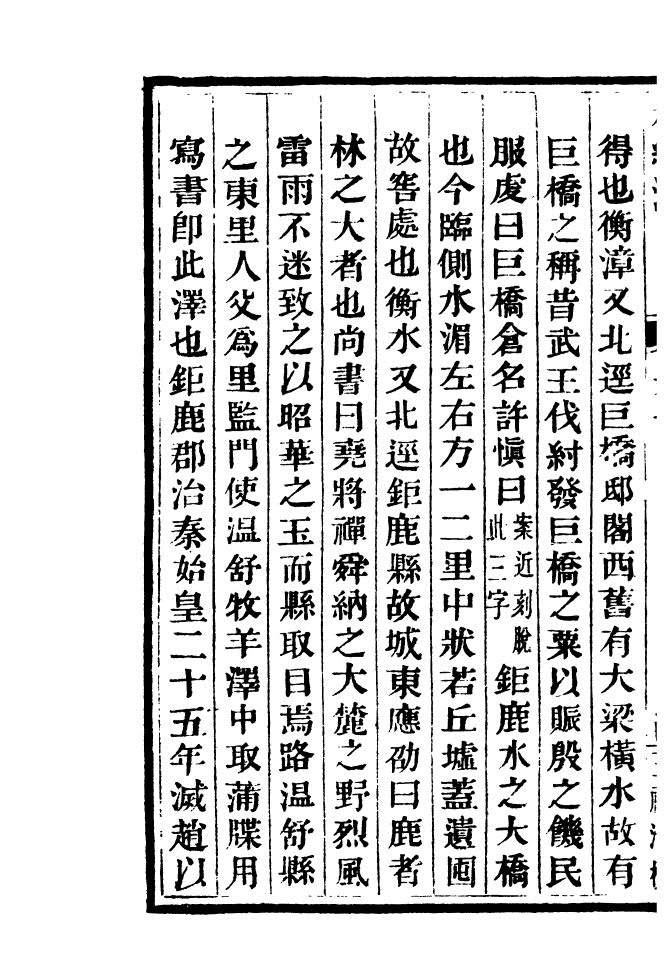 得也衡漳又北逕巨橋邸閣西舊有大梁橫水故有
巨橋之稱昔武王伐紂發巨橋之粟以賑殷之饑民
服虔曰巨橋倉名許愼曰案近刻脫此三字鉅鹿水之大橋
也今臨側水湄左右方一二里中狀若丘墟蓋遺囤
故窖處也衡水又北逕鉅鹿縣故城東應劭曰鹿者
林之大者也尚書曰堯將禪舜納之大麓之野烈風
雷雨不迷致之以昭華之玉而縣取目焉路温舒縣
之東里人父爲里監門使温舒牧羊澤中取蒲牒用
寫書卽此澤也鉅鹿郡治秦始皇二十五年滅趙以